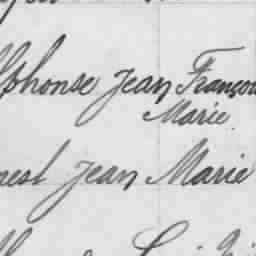 lphonse Jean Françoi
Marie
nest Jean Marie